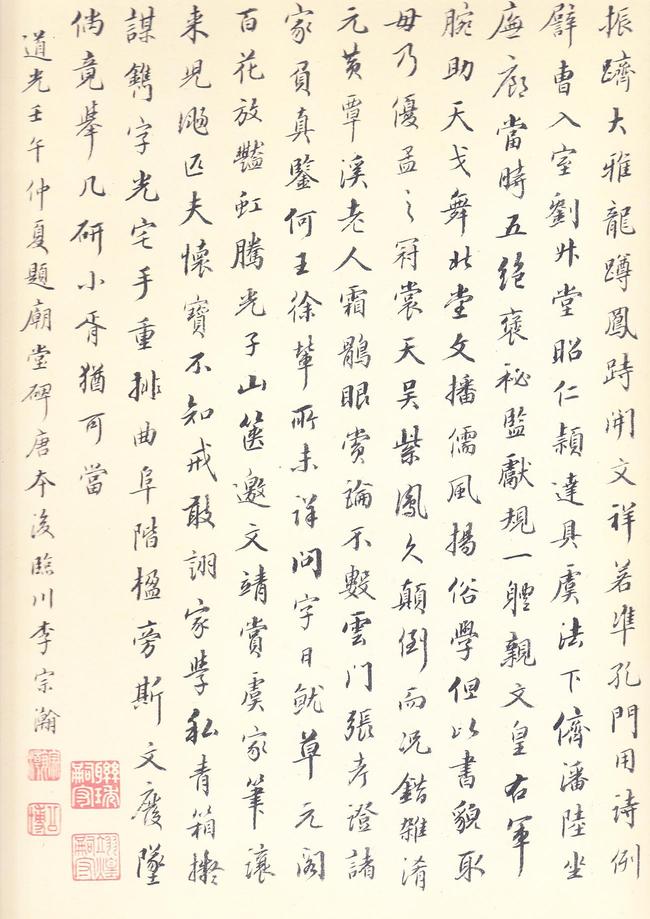 振躋大雅龍蹲鳳跱開文祥若準孔門用詩例
譬曹入室劉升堂昭仁潁達具虞法下儕潘陸坐
廡廊當時五絕褒秘監獻規一體親文皇右軍
腕助天戈舞北堂文播儒風揚俗學但以書貌取
毋乃優孟之冠裳天吳紫鳳久顛倒而況錯雜淆
元黃覃溪老人霜鶻眼賞論不數雲門張考證諸
家負真鑒何王徐輩所未詳問字日就草元閣
百花放豔虹騰光子山篋邀文靖賞虞家筆讓
來兒颺匹夫懷寶不知戒敢詡家學私青箱擬
謀鐫字光宅手重排曲阜階楹旁斯文廢墜
倘竟舉几研小胥猶可當
道光壬午仲夏題廟堂碑唐本後臨川李宗瀚
聯琇嗣守
翊煌嗣守